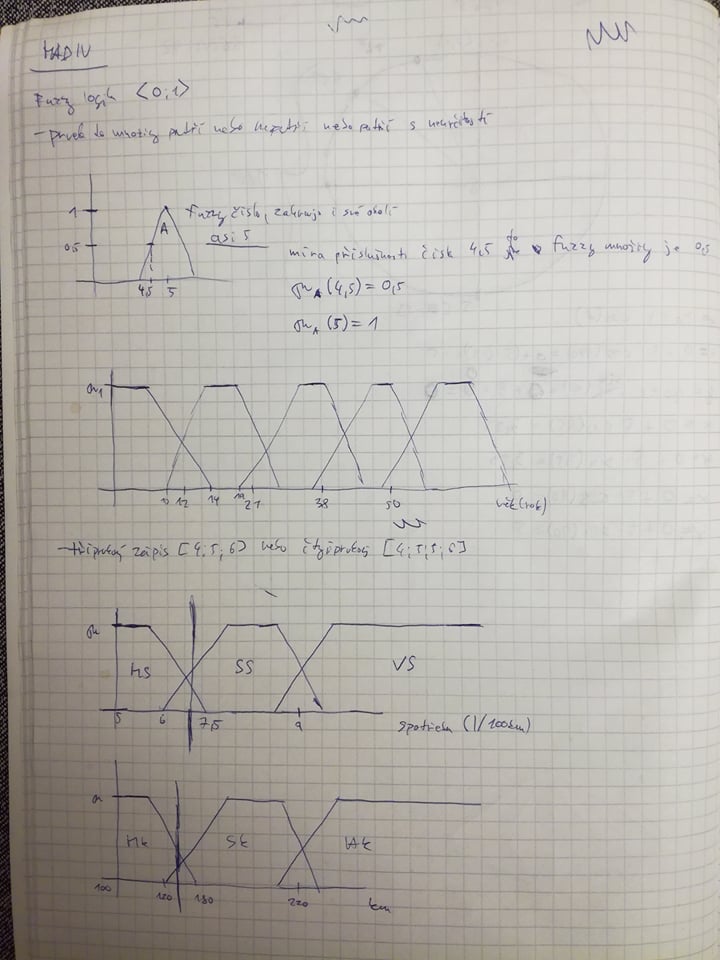 MADIV
Fuzzy logik <0;1>
- prvek do množiny patří nebo nepatří nebo patří s určitostí
1
0,5
A
4,5 5
Fuzzy číslo, zahrnuje i své okolí
asi 5
míra příslušnosti čísk 4,5 do fuzzy množiny je 0,5
μ_A (4,5) = 0,5
μ_A (5) = 1
μ 1
10 12 14 19 21 38 50 věk (rok)
- tříprvkový zápis [4; 5; 6] nebo čtyřprvkový [4; 5; 5; 6]
μ
MS SS VS
5 6 7,5 9
spotřeba (l/100km)
Mk Sk
100 120 180 220 km